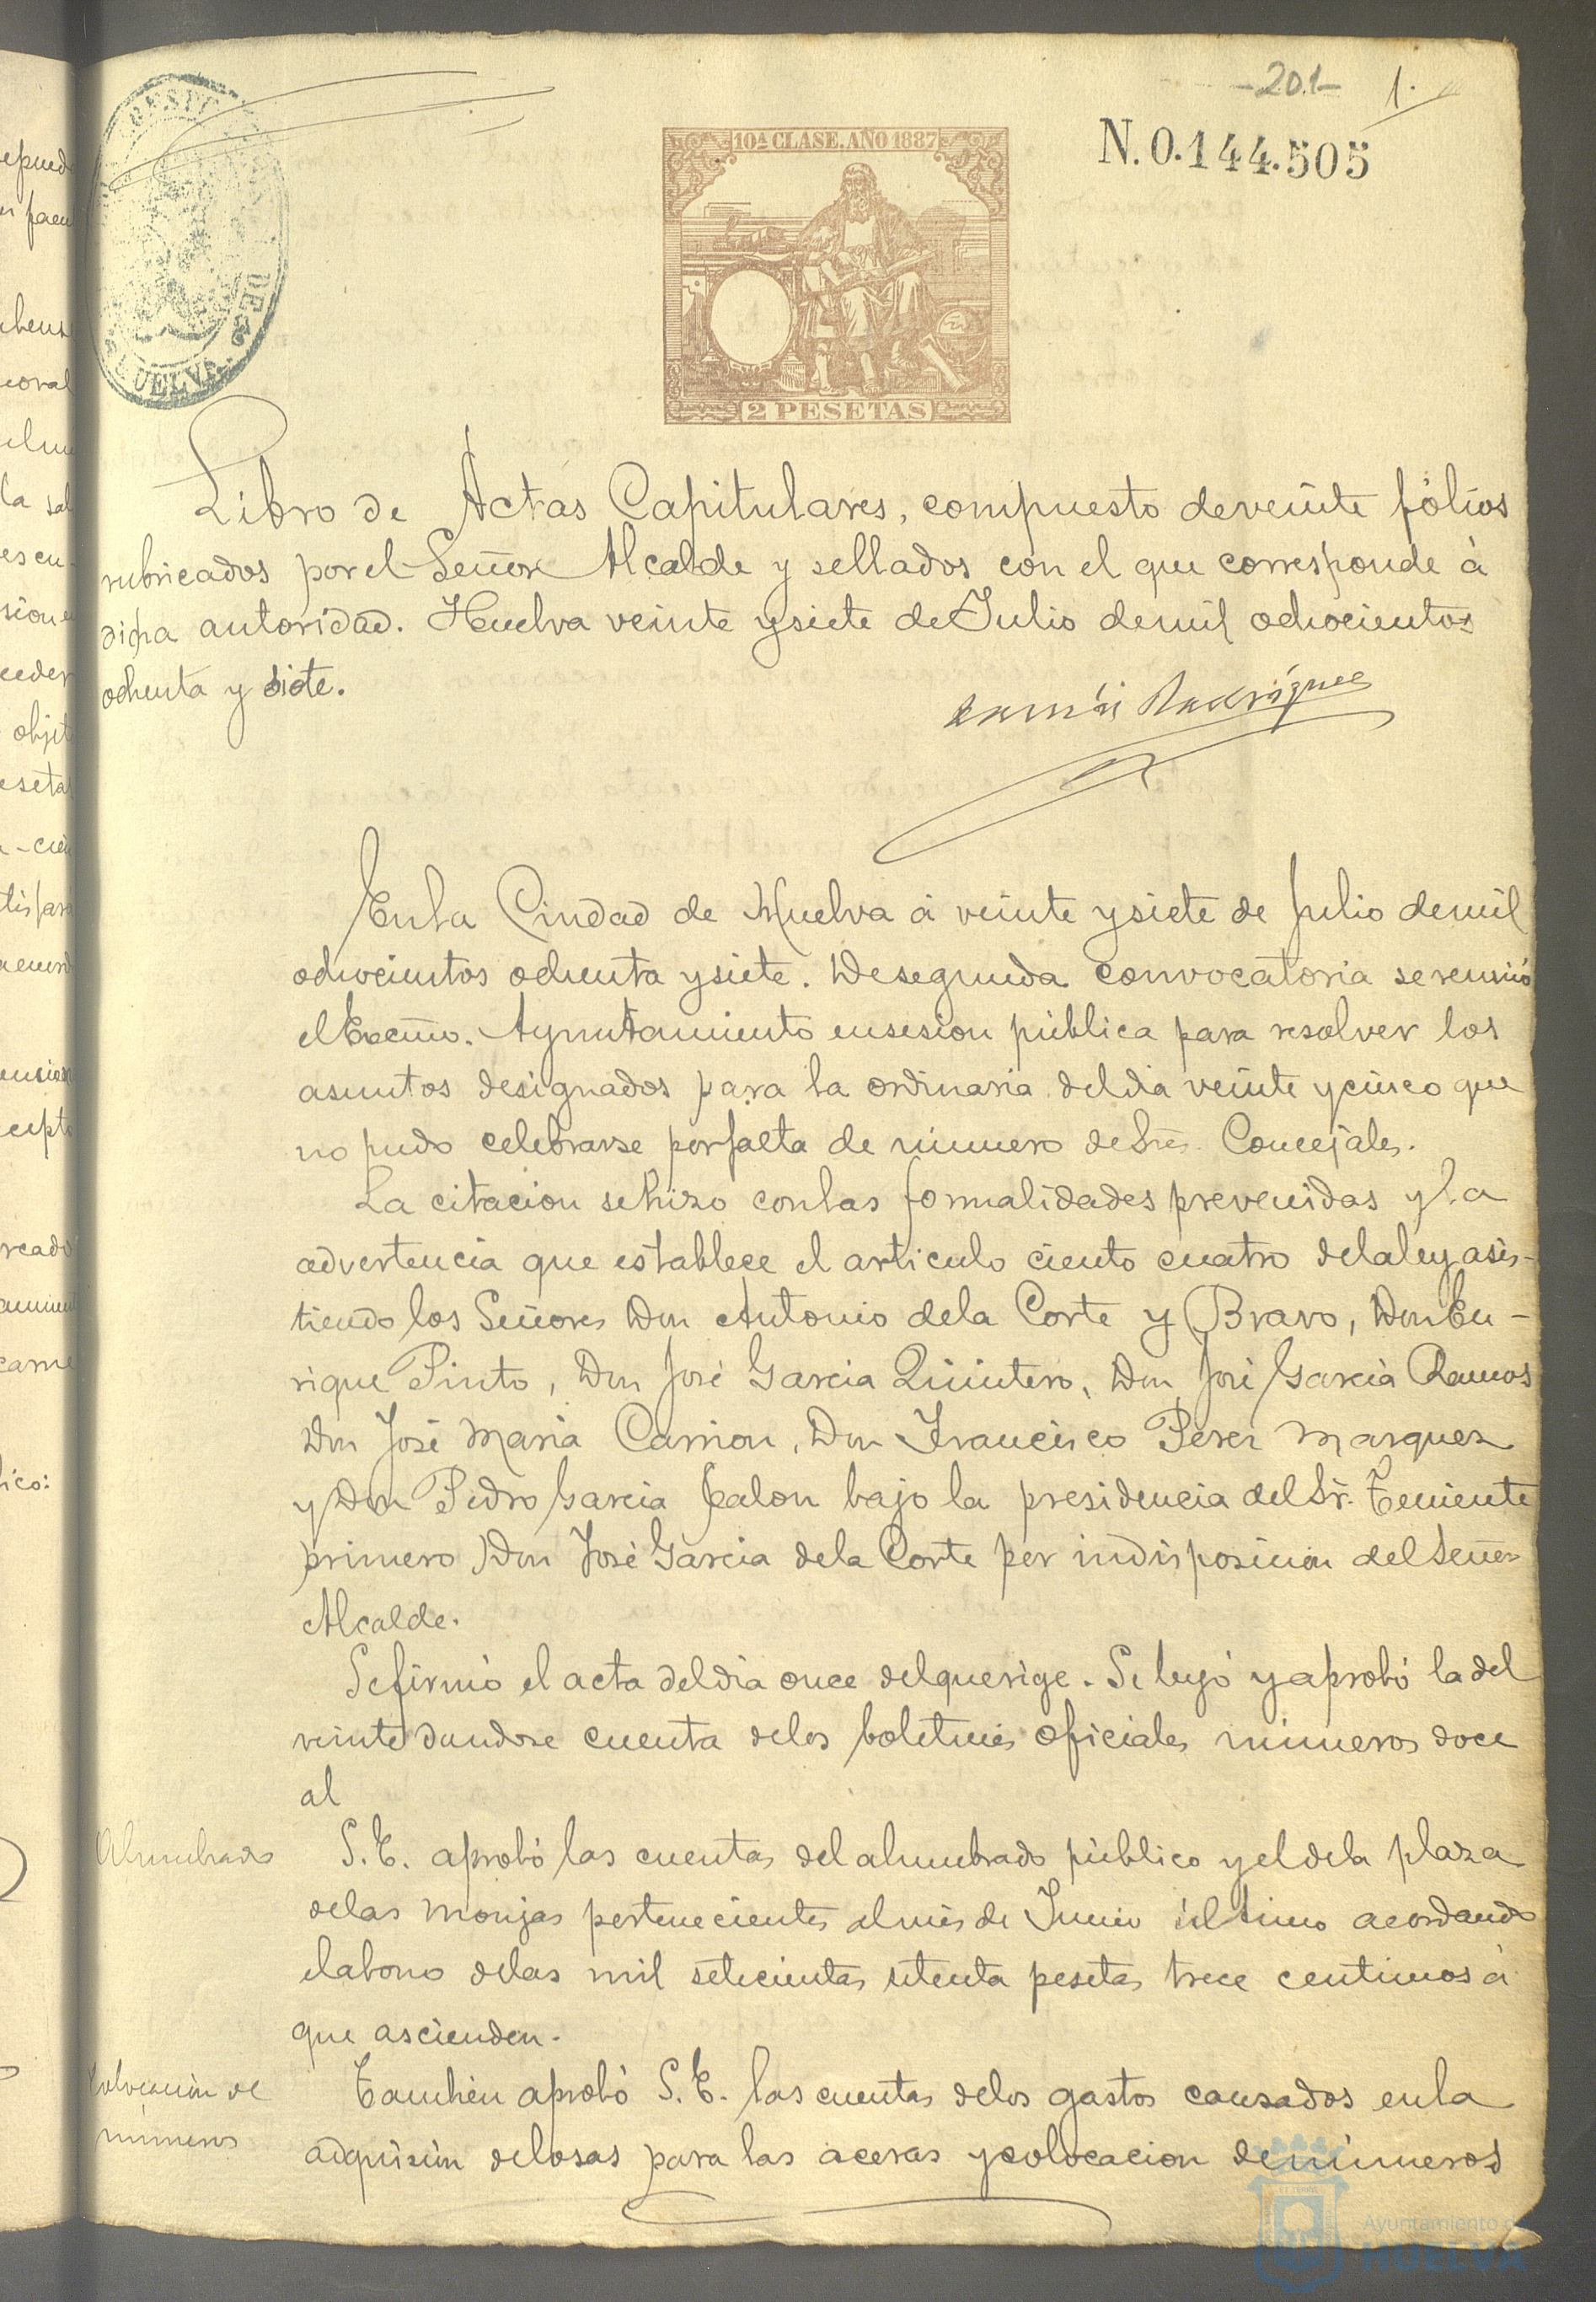 -201- 1.
10ª CLASE. AÑO 1887
N.0.144.505
2 PESETAS
HUELVA
Libro de Actas Capitulares, compuesto de veinte fólios
rubricados por el Señor Alcalde y sellados con el que corresponde á
dicha autoridad. Huelva veinte y siete de Julio de mil ochocientos
ochenta y siete.
Rodriguez
En la Ciudad de Huelva á veinte y siete de Julio de mil
ochocientos ochenta y siete. De segunda convocatoria se reunió
el Excmo. Ayuntamiento en sesion pública para resolver los
asuntos designados para la ordinaria del dia veinte y cinco que
no pudo celebrarse por falta de número de Sres. Concejales.
La citacion se hizo con las formalidades prevenidas y la
advertencia que establece el articulo ciento cuatro de la ley asis-
tiendo los Señores Don Antonio de la Corte y Bravo, Don En-
rique Pinto, Don José Garcia Quintero, Don José Garcia Ramos
Don José Maria Carrion, Don Francisco Perez Marquez
y Don Pedro Garcia Jalon bajo la presidencia del Sr. Teniente
primero Don José Garcia de la Corte por indisposicion del Señor
Alcalde.
Se firmó el acta del dia once del que rige. Se leyó y aprobó la del
veinte dandose cuenta de los boletines oficiales números doce
al
Alumbrado
S. E. aprobó las cuentas del alumbrado público y el de la plaza
de las Monjas pertenecientes al mes de Junio último acordando
el abono de las mil setecientas setenta pesetas trece centimos á
que ascienden.
Colocacion de
números
Tambien aprobó S. E. las cuentas de los gastos causados en la
adquisiin de losas para las aceras y colocacion de números
Ayuntamiento de
HUELVA